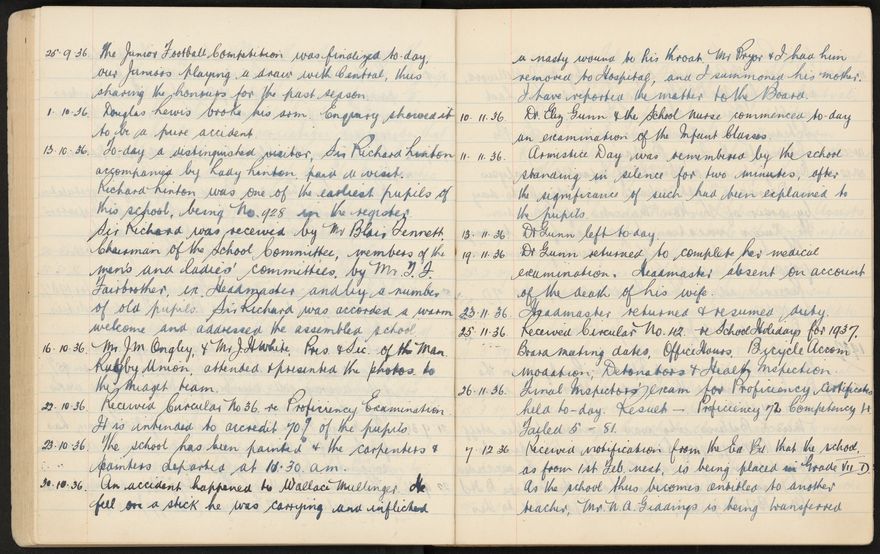 25·9·36 The Junior Football Competition was finalized to-day,
our Juniors playing a draw with Central, thus
sharing the honours for the past season.
1·10·36 Douglas Lewis broke his arm. Enquiry showed it
to be a pure accident.
13·10·36. To-day a distinguished visitor, Sir Richard Linton
accompanied by Lady Linton, paid a visit.
Richard Linton was one of the earliest pupils of
this school, being No. 928 in the register.
Sir Richard was received by Mr Blair Tennett
Chairman of the School Committee, members of the
men's and ladies' committees, by Mr.
Fairbrother, ex. Headmaster and by a number
of old pupils. Sir Richard was accorded a warm
welcome and addressed the assembled school.
16·10·36. Mr. J. M. Ongley, & Mr J. H. White, Pres. & Sec. of the Man.
Rugby Union, attended & presented the photos. to
the midget team.
22·10·36 Received Circular No 36. re Proficiency Examination.
It is intended to accredit 70% of the pupils.
23·10·36 The school has been painted & the carpenters &
painters departed at 10.30 a.m.
30·10·36. An accident happened to Wallace Mullinger. He
fell on a stick he was carrying and inflicted
a nasty wound to his throat. Mr Pryor & I had him
removed to Hospital, and I summoned his mother.
I have reported the matter to the Board.
10·11·36. Dr. Eliz Gunn & the School Nurse commenced to-day
an examination of the Infant Classes.
11·11·36. Armistice Day was remembered by the school
standing in silence for two minutes, after
the significance of such had been explained to
the pupils.
13·11·36 Dr Gunn left to-day.
19·11·36 Dr Gunn returned to complete her medical
examination. Headmaster absent on account
of the death of his wife.
23·11·36 Headmaster returned & resumed duty.
25·11·36. Received Circular No. 42 re School Holidays for 1937,
Board meeting dates, Office Hours, Bicycle Accom-
modation, Detonators & Health Inspection.
26·11·36. Final Inspectors' exam for Proficiency Certificates
held to-day. Result — Proficiency 42 Competency 4
Failed 5 - 51.
7·12·36 Received notification from the Ed. Bd. that the school,
as from 1st Feb. next, is being placed in Grade VII D.
As the school thus becomes entitled to another
teacher, Mr. W. A. Giddings is being transferred